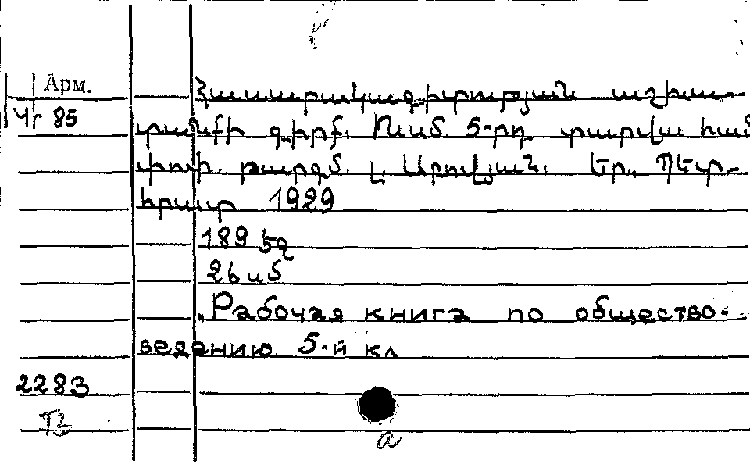 Арм.
Հասարակագիտության աշխա-
Чг 85
տանքի գիրք. Ուսմ. 5-րդ տարվա համ
փոփ. թարգմ. Լ. Արուշյան. Եր., Պետ-
հրատ 1929
189 էջ
26 սմ
"Рабочая книга по общество-
ведению 5-й кл
2283
а